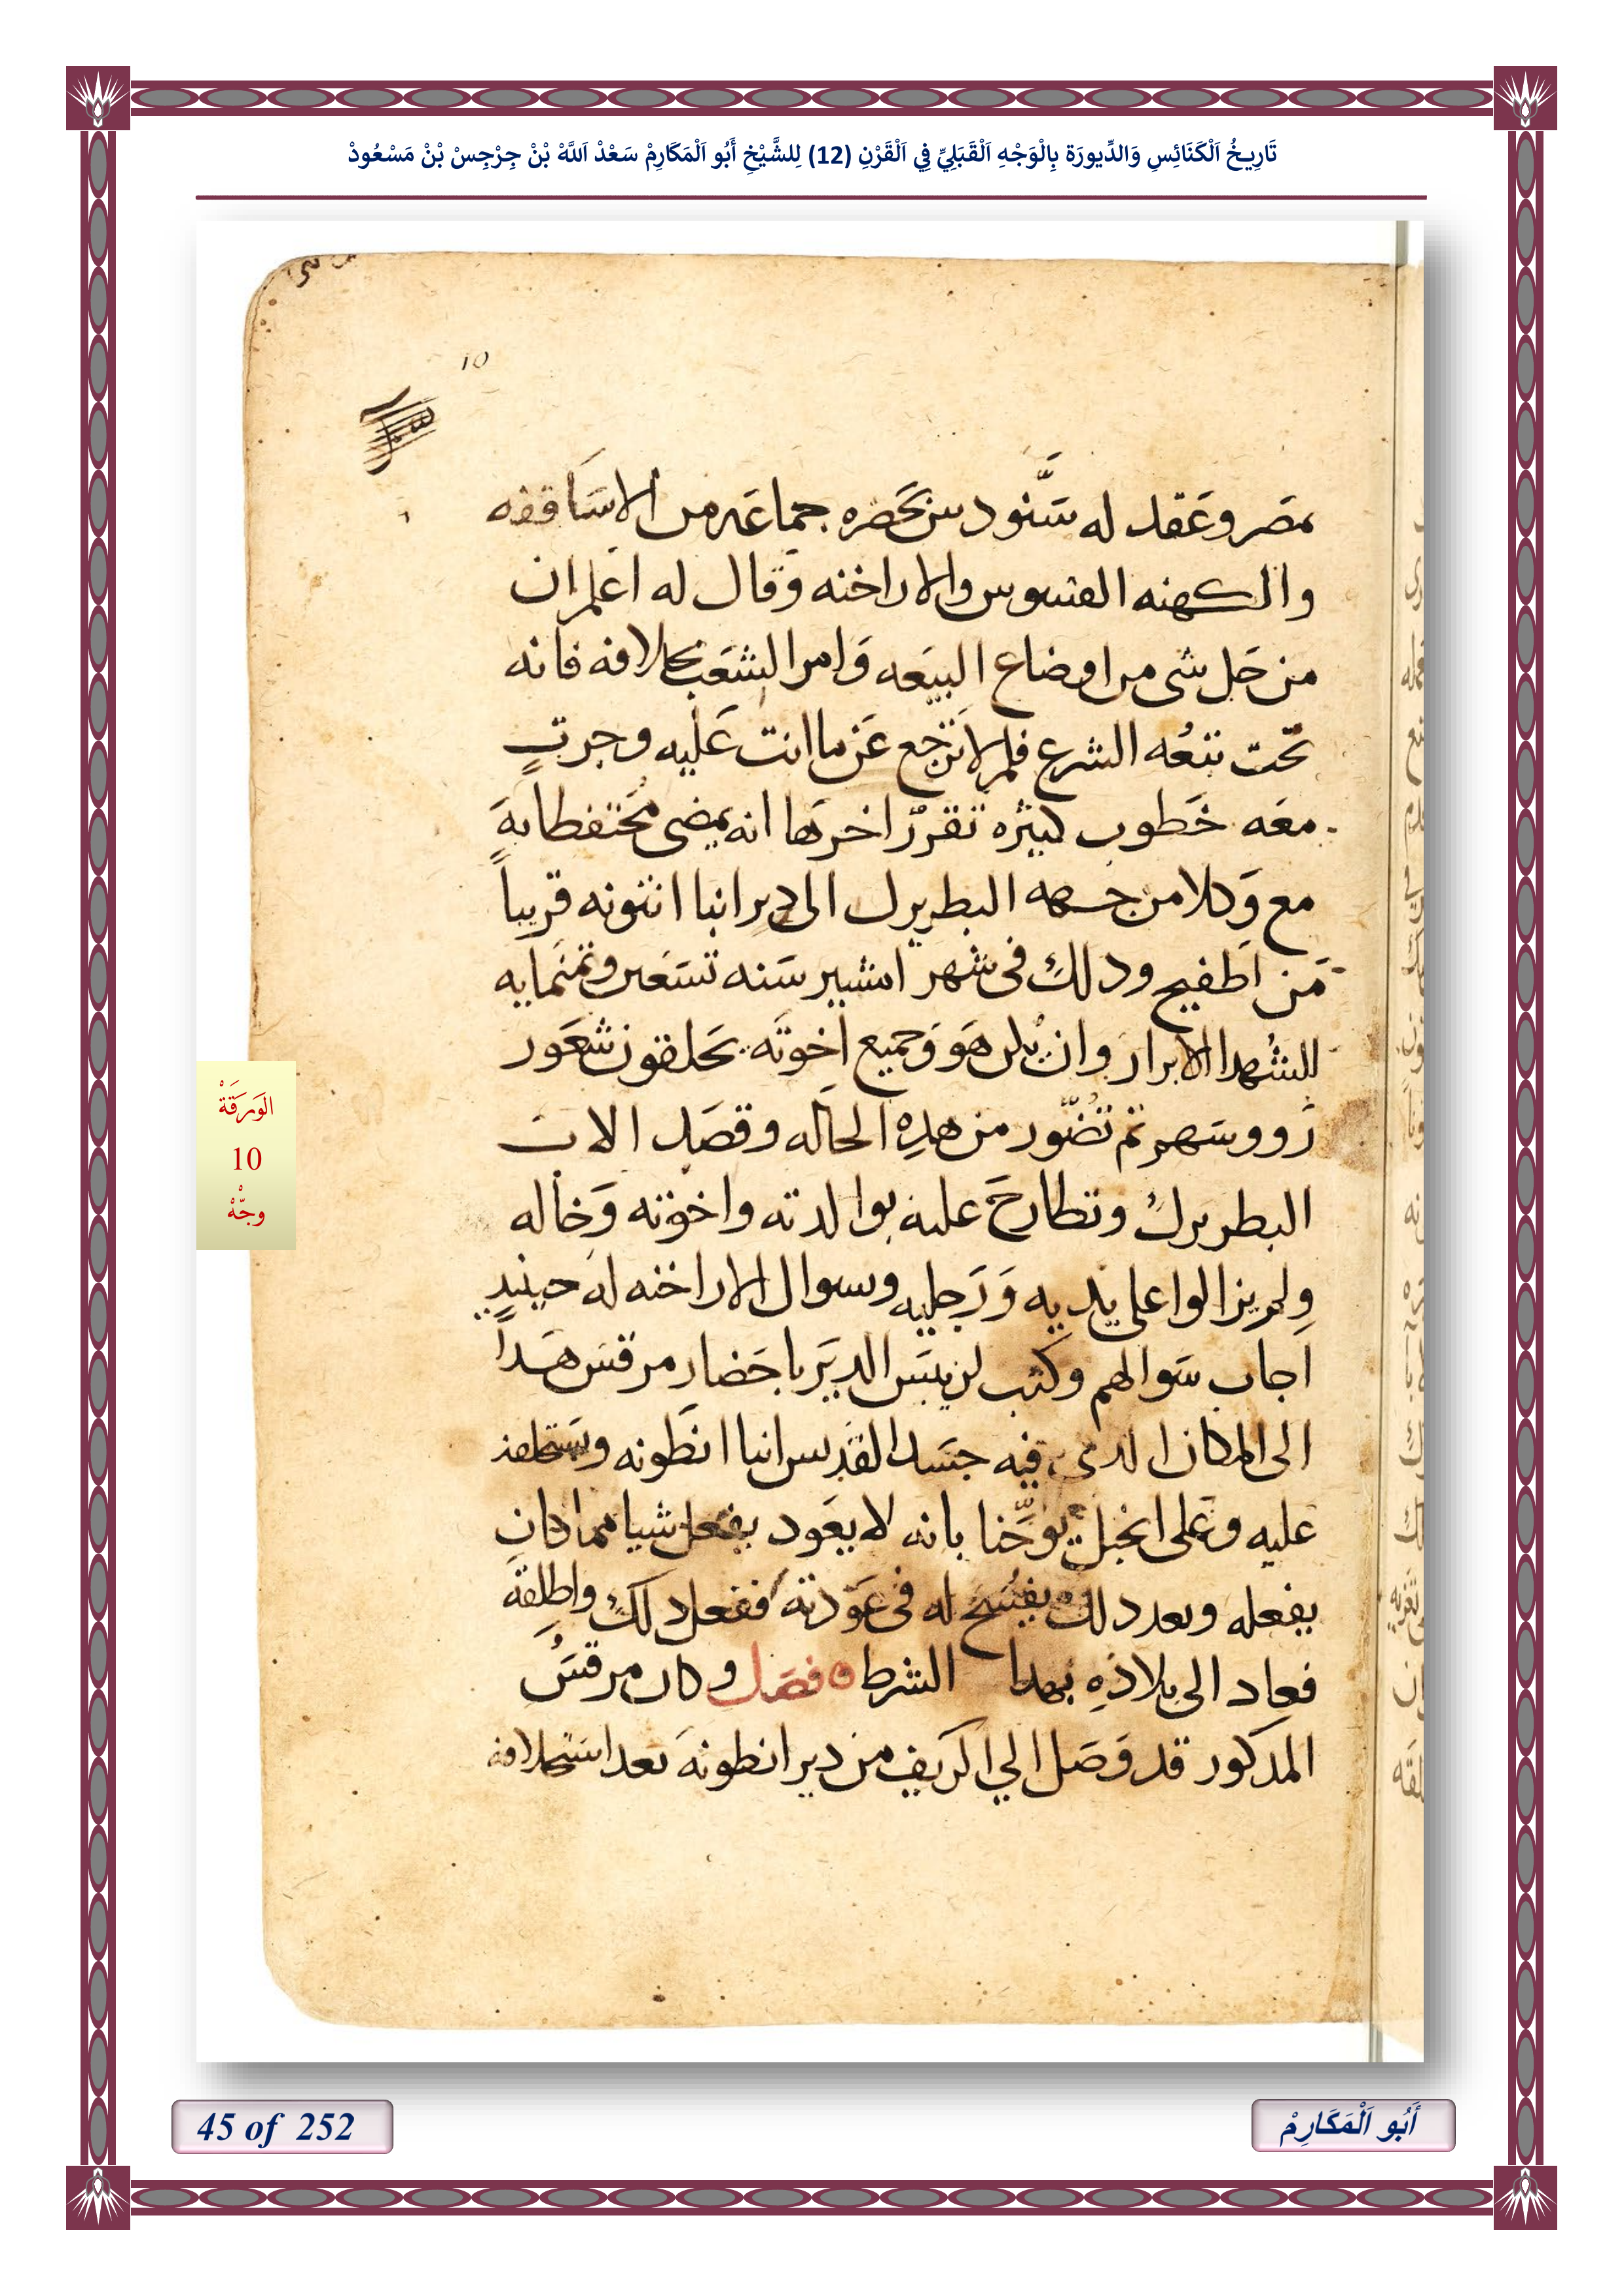 تَارِيخُ اَلْكَنَائِسِ وَالدِّيورَة بِالْوَجْهِ اَلْقَبَلِيِّ فِي اَلْقَرْنِ (12) لِلشَّيْخِ أَبُو اَلْمَكَارِمْ سَعْدْ اَللَّهْ بْنْ جِرْجِسْ بْنْ مَسْعُودْ
10
مصَر وعَقد له سَّنودس بحَضره جماعَه من الاسَاقفه
والكهنه القسوس والاراخنه وقال له اعلم ان
من حَل شى من اوضاع البيعَه وَامر الشعَب بخلافه فانه
تحّت تبعُه الشرع فلم لا ترجع عَن ما انت عَليه وجرت
معَه خَطوب كبيره تقررّ اخرهَا انه يمضى مُحَتفظا بهَ
مع وَكلا من جهه البطريرك الى دير انبا انتونه قريباً
مَن اطفيح ودلك فى شهر امشير سَنه تسَعين وتمنمايه
للشُهدا الابرار وان يكن هَو وَجميع اخوتَه يحَلقون شعَور
رَووسَهم تم تضّور من هدِه الحاله وقصَد الاب
البطريرك وتطارحَ عليه بوالدته واخوته وَخاله
ولم يزالوا على يديه وَرَجليه وسوال الاراخنه له حينيدٍ
اجاب سَوالهم وكتب لريَس الديَر باحَضار مرقسَ هَداً
الى المكان الدى فيه جسَد القديس انبا انطونه ويستحلفه
عليه وعَلى انجيل يوحَّنا بانه لا يعَود يفعل شيا مما كان
يفعله وبعد دلك يفسَح له فى عَودته ففعل دلك واطلِقهَ
فعاد الى بلادِه بهدا الشرط ه فصَل وكان مرقسَ
المدكور قد وصَل الي الريف من دير انطونهَ بعد استحلافه
الوَرَقَةْ
10
وجّْهْ
45 of 252
أَبُو اَلْمَكَارِمْ